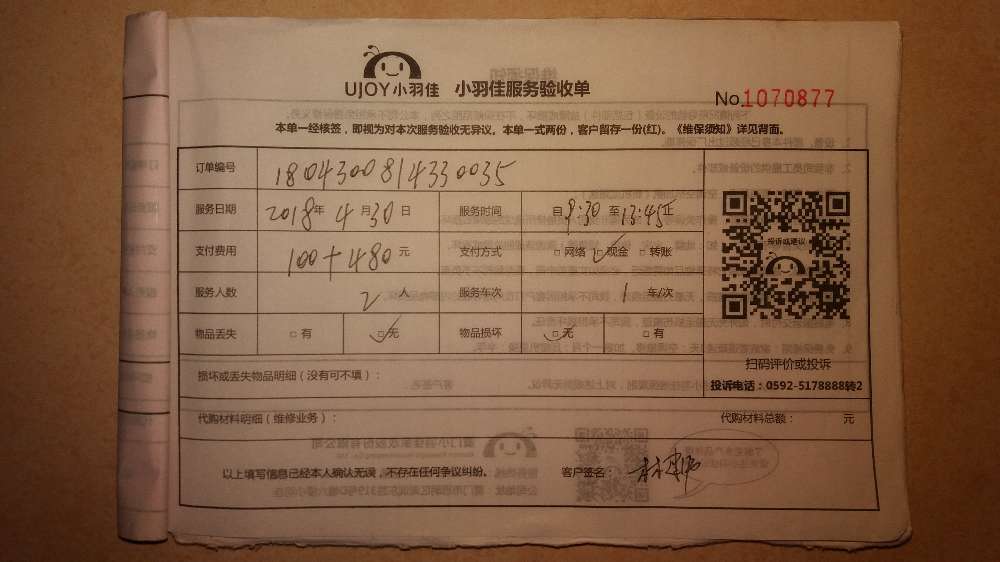 UJOY小羽佳 小羽佳服务验收单
No.1070877
本单一经核签，即视为对本次服务验收无异议。本单一式两份，客户留存一份(红)。《维保须知》详见背面。
订单编号 1804300814330035
服务日期 2018年4月30日 服务时间 自9:30至13:45止
支付费用 100+480元 支付方式 □网络 ☑现金 □转账
服务人数 2人 服务车次 1车/次
物品丢失 □有 ☑无 物品损坏 ☑无 □有
投诉或建议
扫码评价或投诉
投诉电话：0592-5178888转2
损坏或丢失物品明细（没有可不填）：
代购材料明细（维修业务）： 代购材料总额： 元
以上填写信息已经本人确认无误，不存在任何争议纠纷。 客户签名：